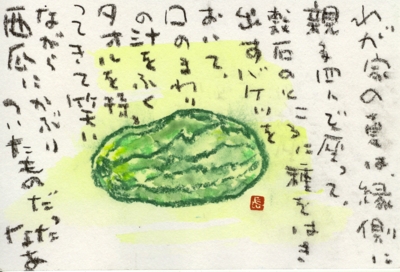 わが家の夏は、縁側に
親子四人で座って、
敷石のところに種をはき
出すバケツを
おいて、
口のまわり
の汁をふく
タオルを持
ってきて笑い
ながら
西瓜にかぶり
ついたものだったなあ